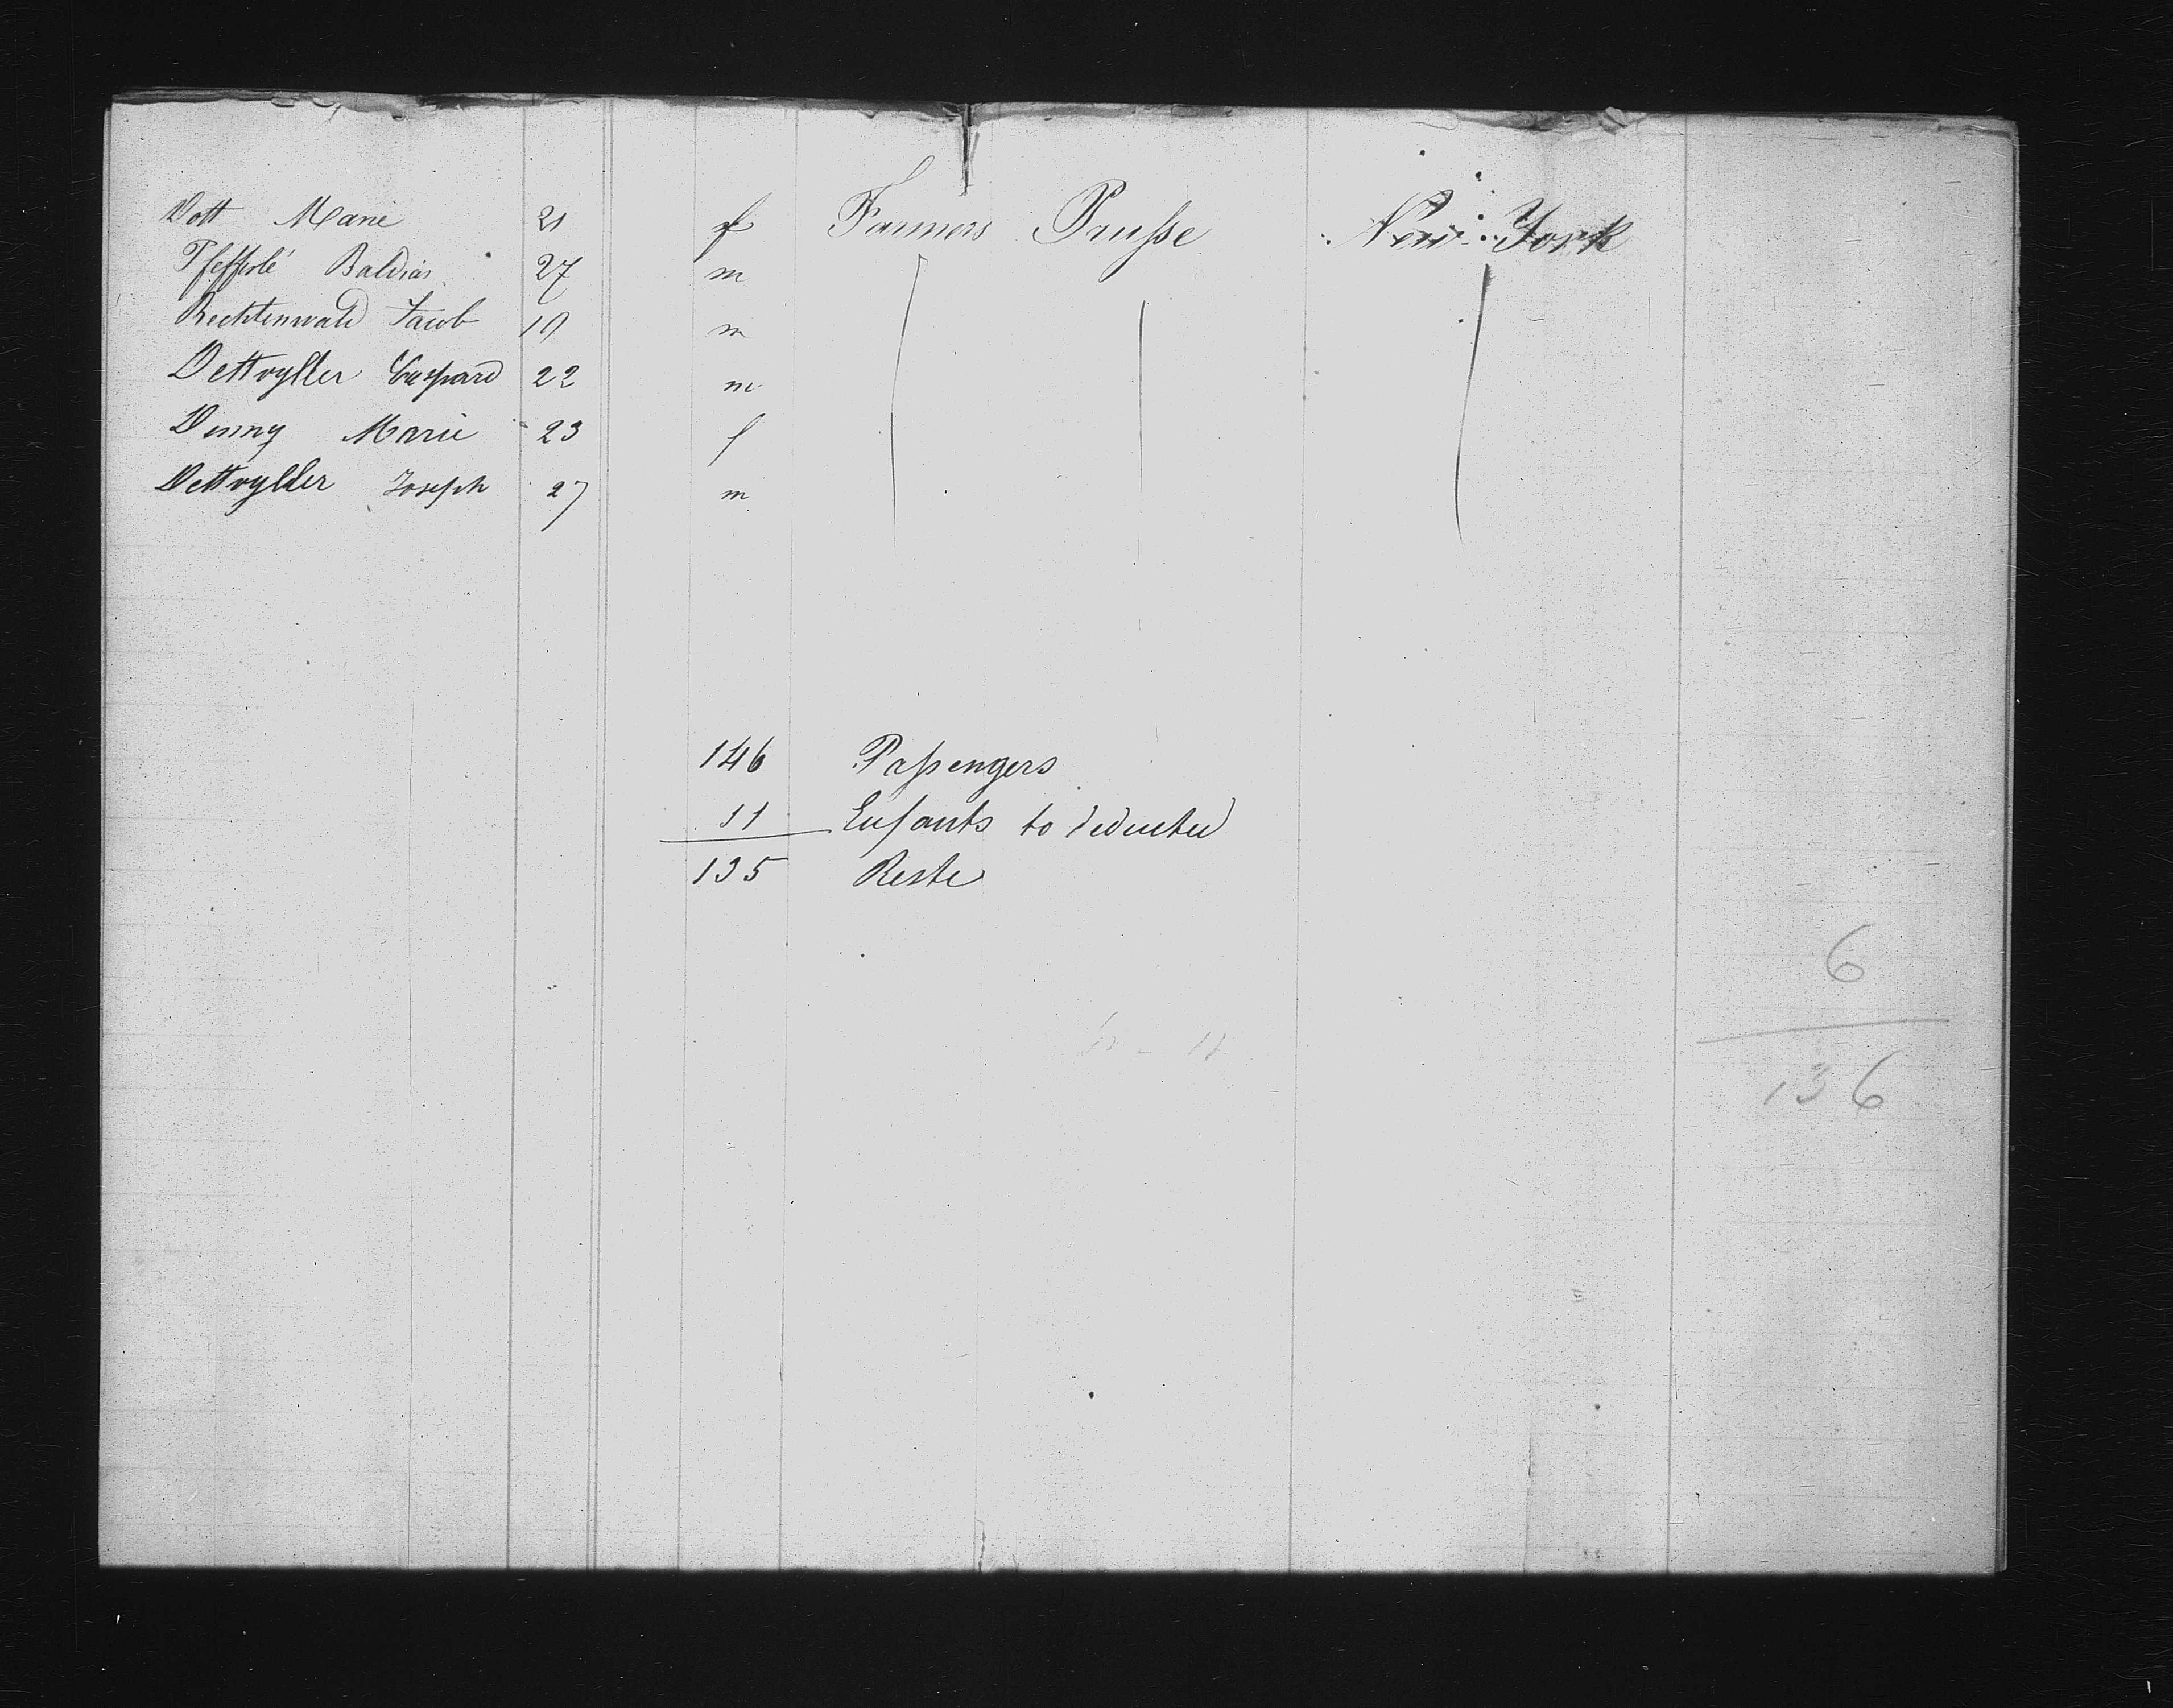 Dott Marie 21 f Farmers Prusse New-York
Pfefferlé Baldias 27 m
Rechtenwald Jacob 19 m
Dettvyller Caspard 22 m
Denny Marie 23 f
Dettvyller Joseph 27 m
146 Passengers
11 Enfants to deducted
135 Reste
6
136